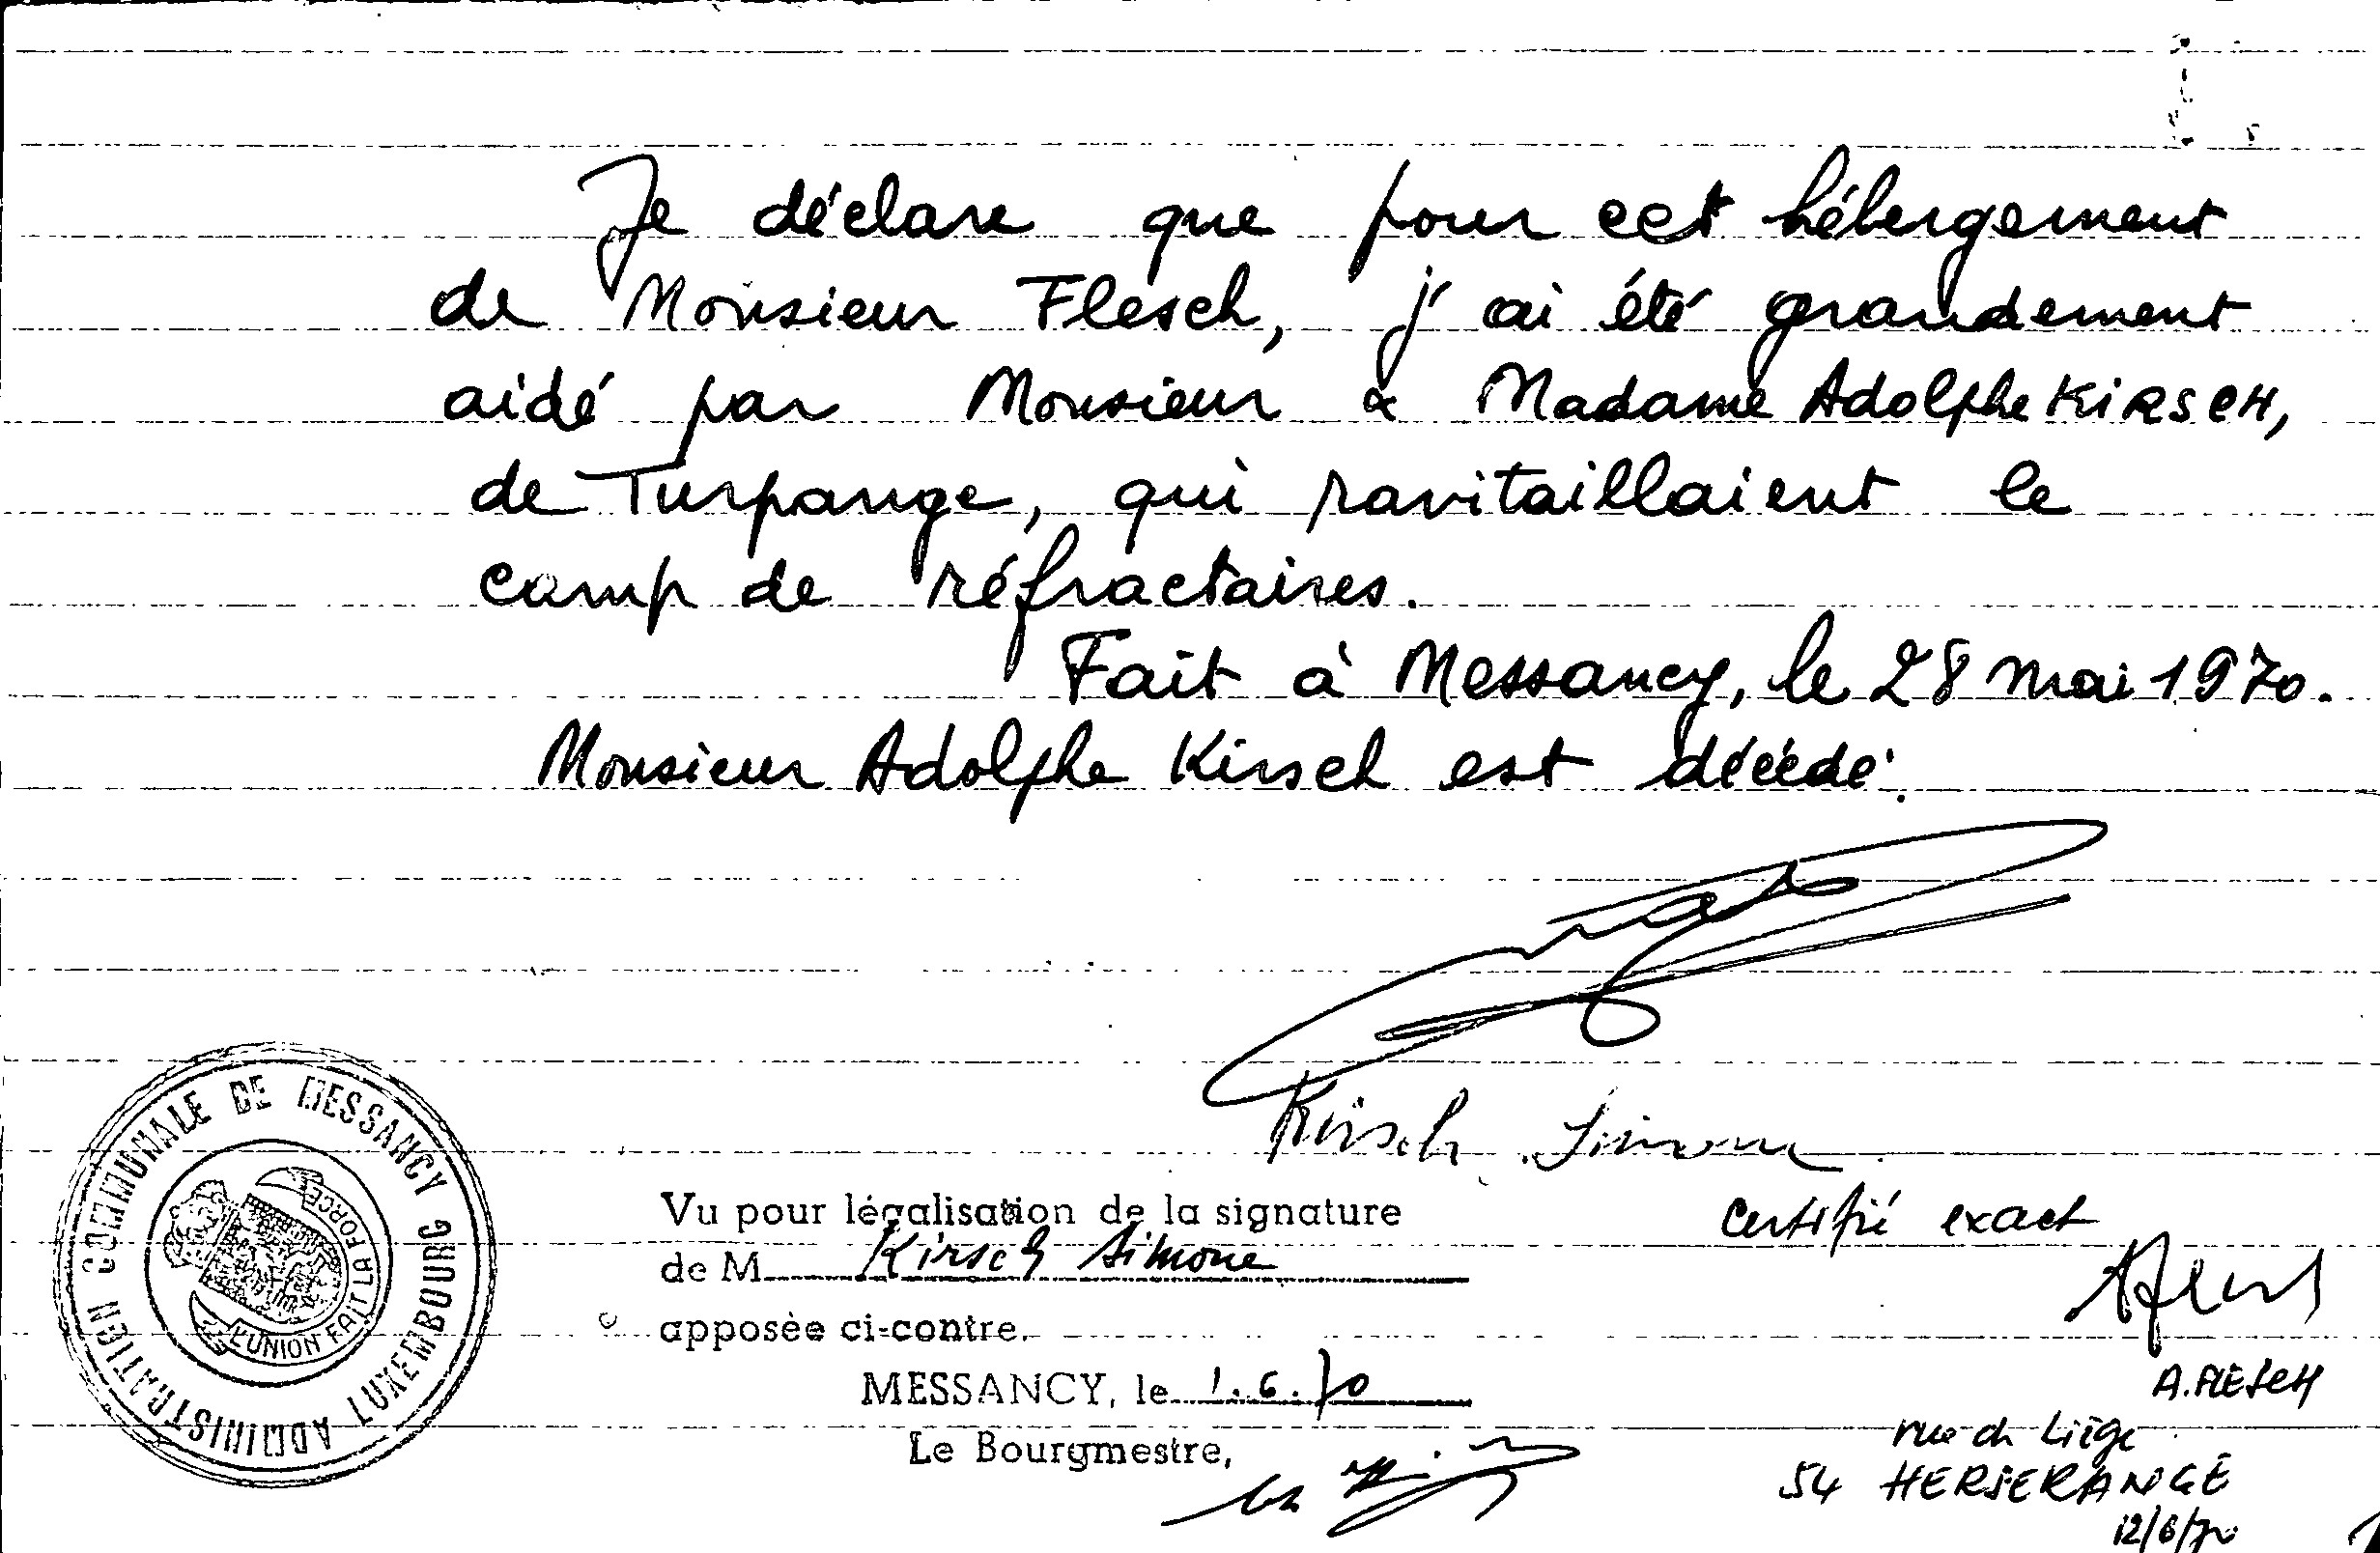 Je déclare que pour cet hébergement
de Monsieur Flesch, j'ai été grandement
aidé par Monsieur & Madame Adolphe KIRSCH,
de Turpange, qui ravitaillaient le
camp de réfractaires.
Fait à Messancy, le 28 mai 1970.
Monsieur Adolphe Kirsch est décédé.
Kirsch Simone
ADMINISTRATION COMMUNALE DE MESSANCY LUXEMBOURG
L'UNION FAIT LA FORCE
Vu pour légalisation de la signature
de M Kirsch Simone
apposée ci-contre.
MESSANCY, le 1.6.70
Le Bourgmestre,
Certifié exact
A. FLESCH
rue de Liège
54 HERSERANGE
12/6/70